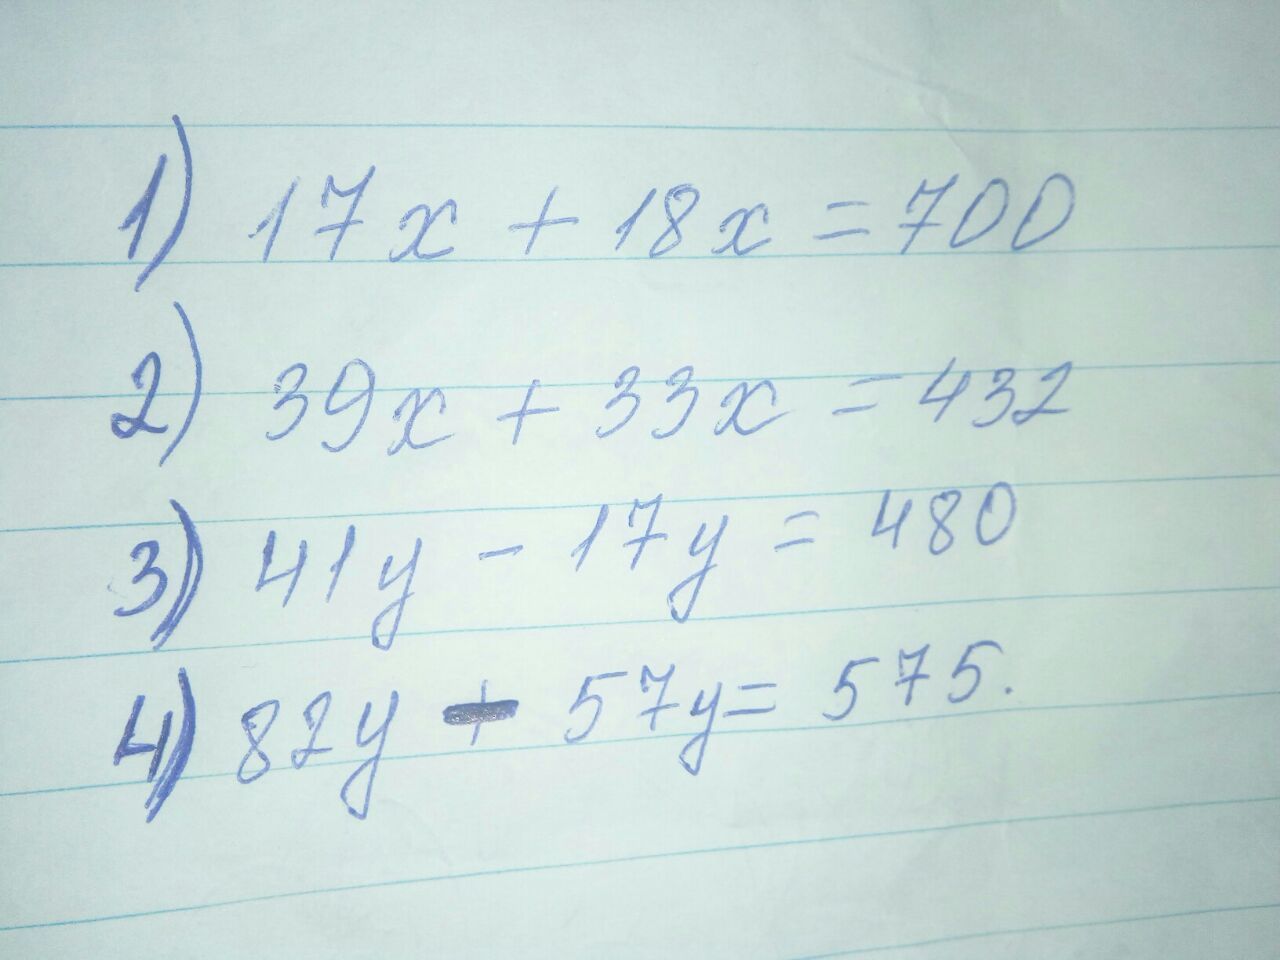 1) 17x + 18x = 700
2) 39x + 33x = 432
3) 41y - 17y = 480
4) 82y - 57y = 575.